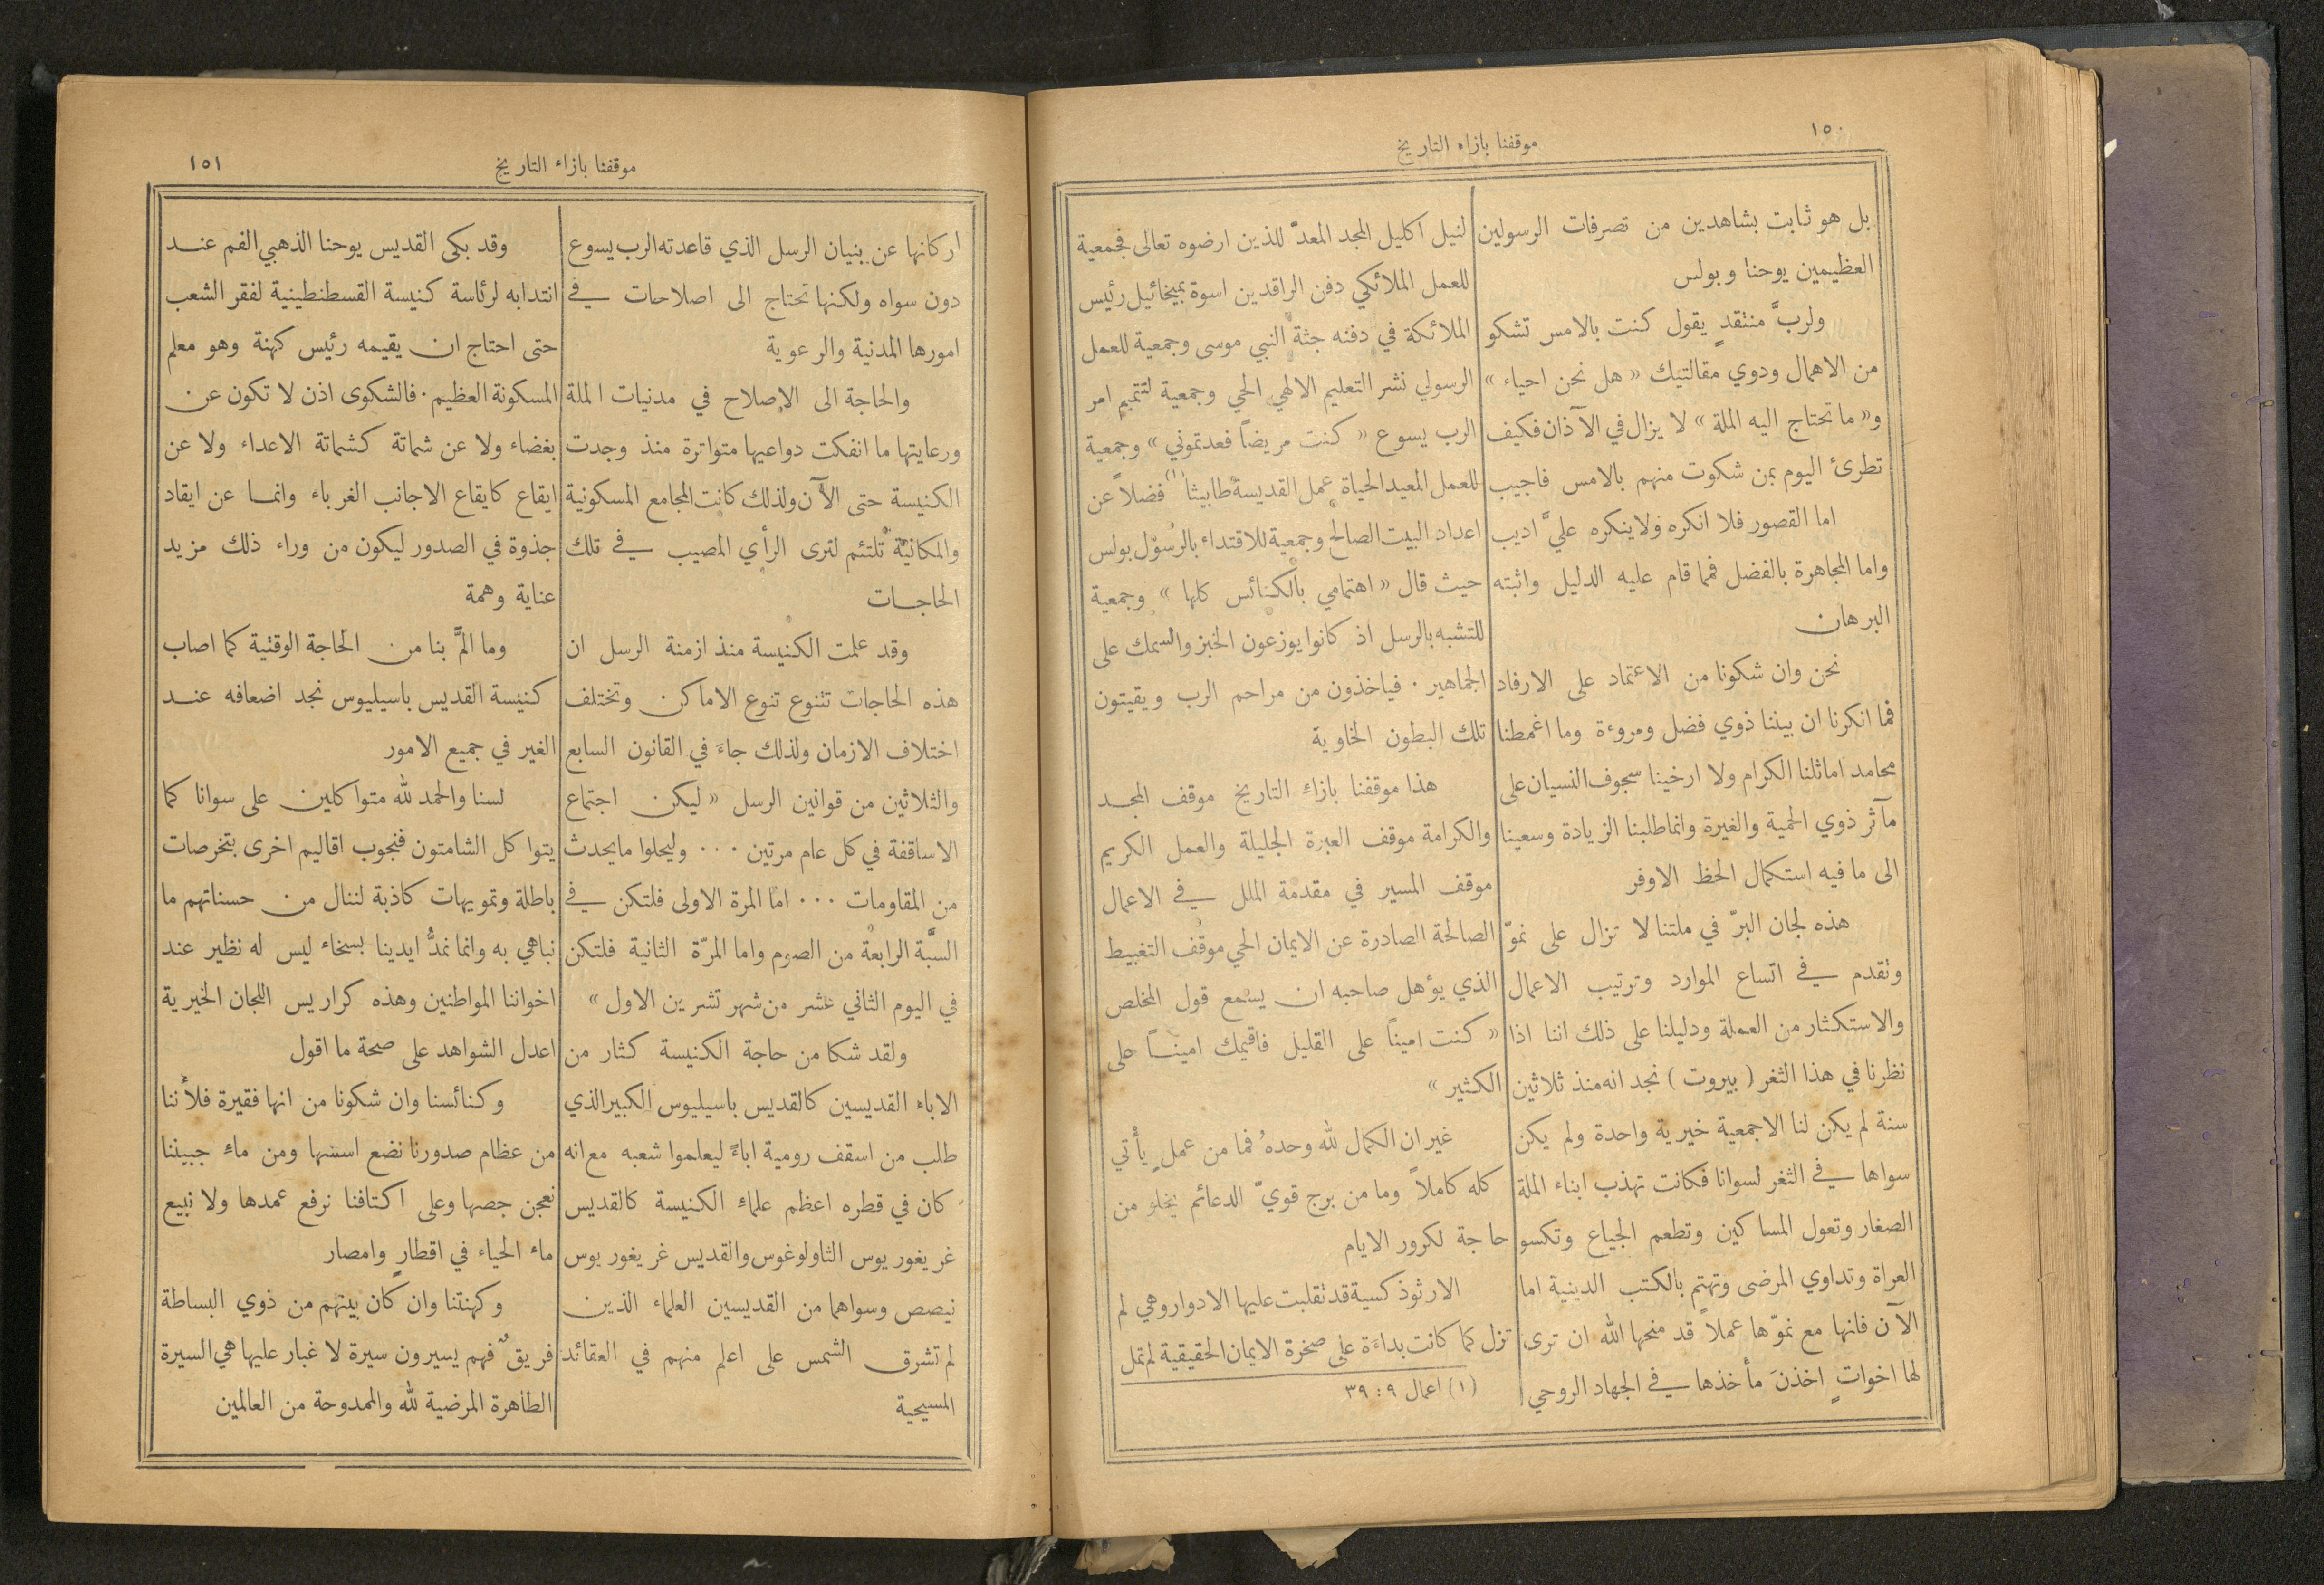 ١٥٠
موقفنا بازاء التاريخ
بل هو ثابت بشاهدين من تصرفات الرسولين
العظيمين يوحنا وبولس
ولربَّ منتقدٍ يقول كنت بالامس تشكو
من الاهمال ودوي مقالتيك « هل نحن احياء »
و« ما تحتاج اليه الملة » لا يزال في الآذان فكيف
تطرئ اليوم بمن شكوت منهم بالامس فاجيب
اما القصور فلا انكره ولا ينكره عليَّ اديب
واما المجاهرة بالفضل فمما قام عليه الدليل واثبته
البرهان
نحن وان شكونا من الاعتماد على الارفاد
فما انكرنا ان بيننا ذوي فضل ومروءة وما اغمطنا
محامد اماثلنا الكرام ولا ارخينا سجوف النسيان على
مآثر ذوي الحمية والغيرة وانما طلبنا الزيادة وسعينا
الى ما فيه استكمال الحظ الاوفر
هذه لجان البرّ في ملتنا لا تزال على نموّ
وتقدم في اتساع الموارد وترتيب الاعمال
والاستكثار من العملة ودليلنا على ذلك اننا اذا
نظرنا في هذا الثغر ( بيروت ) نجد انه منذ ثلاثين
سنة لم يكن لنا الا جمعية خيرية واحدة ولم يكن
سواها في الثغر لسوانا فكانت تهذب ابناء الملة
الصغار وتعول المساكين وتطعم الجياع وتكسو
العراة وتداوي المرضى وتهتم بالكتب الدينية اما
الآن فانها مع نموّها عملاً قد منحها الله ان ترى
لها اخواتٍ اخذنَ مأخذها في الجهاد الروحي
لنيل اكليل المجد المعدّ للذين ارضوه تعالى فجمعية
للعمل الملائكي دفن الراقدين اسوة بميخائيل رئيس
الملائكة في دفنه جثة النبي موسى وجمعية للعمل
الرسولي نشر التعليم الالهي الحي وجمعية لتتميم امر
الرب يسوع « كنت مريضاً فعدتموني » وجمعية
للعمل المعيد الحياة عمل القديسة طابيثا (١) فضلاً عن
اعداد البيت الصالح وجمعية للاقتداء بالرسول بولس
حيث قال « اهتمامي بالكنائس كلها » وجمعية
للتشبه بالرسل اذ كانوا يوزعون الخبز والسمك على
الجماهير . فياخذون من مراحم الرب ويقيتون
تلك البطون الخاوية
هذا موقفنا بازاء التاريخ موقف المجد
والكرامة موقف العبرة الجليلة والعمل الكريم
موقف المسير في مقدمة الملل في الاعمال
الصالحة الصادرة عن الايمان الحي موقف التغبيط
الذي يؤهل صاحبه ان يسمع قول المخلص
« كنت اميناً على القليل فاقيمك اميناً على
الكثير »
غير ان الكمال لله وحدهُ فما من عملٍ يأتي
كله كاملاً وما من برج قويّ الدعائم يخلو من
حاجة لكرور الايام
الارثوذكسية قد تقلبت عليها الادوار وهي لم
تزل كما كانت بداءة على صخرة الايمان الحقيقية لم تمل
(١) اعمال ٩ : ٣٩
موقفنا بازاء التاريخ
١٥١
اركانها عن بنيان الرسل الذي قاعدته الرب يسوع
دون سواه ولكنها تحتاج الى اصلاحات في
امورها المدنية والرعوية
والحاجة الى الاصلاح في مدنيات الملة
ورعايتها ما انفكت دواعيها متواترة منذ وجدت
الكنيسة حتى الآن ولذلك كانت المجامع المسكونية
والمكانية تُلتئم لترى الرأي المصيب في تلك
الحاجات
وقد علمت الكنيسة منذ ازمنة الرسل ان
هذه الحاجات تتنوع تنوع الاماكن وتختلف
اختلاف الازمان ولذلك جاءَ في القانون السابع
والثلاثين من قوانين الرسل « ليكن اجتماع
الاساقفة في كل عام مرتين ... وليحلوا ما يحدث
من المقاومات ... اما المرة الاولى فلتكن في
السبَّة الرابعة من الصوم واما المرّة الثانية فلتكن
في اليوم الثاني عشر من شهر تشرين الاول »
ولقد شكا من حاجة الكنيسة كثار من
الاباء القديسين كالقديس باسيليوس الكبير الذي
طلب من اسقف رومية اباءً ليعلموا شعبه مع انه
كان في قطره اعظم علماء الكنيسة كالقديس
غريغوريوس الثاولوغوس والقديس غريغوريوس
نيصص وسواهما من القديسين العلماء الذين
لم تشرق الشمس على اعلم منهم في العقائد
المسيحية
وقد بكى القديس يوحنا الذهبي الفم عند
انتدابه لرئاسة كنيسة القسطنطينية لفقر الشعب
حتى احتاج ان يقيمه رئيس كهنة وهو معلم
المسكونة العظيم . فالشكوى اذن لا تكون عن
بغضاء ولا عن شماتة كشماتة الاعداء ولا عن
ايقاع كايقاع الاجانب الغرباء وانما عن ايقاد
جذوة في الصدور ليكون من وراء ذلك مزيد
عناية وهمة
وما المَّ بنا من الحاجة الوقتية كما اصاب
كنيسة القديس باسيليوس نجد اضعافه عند
الغير في جميع الامور
لسنا والحمد لله متواكلين على سوانا كما
يتواكل الشامتون فنجوب اقاليم اخرى بتخرصات
باطلة وتمويهات كاذبة لننال من حسناتهم ما
نباهي به وانما نمدُّ ايدينا بسخاء ليس له نظير عند
اخواننا المواطنين وهذه كراريس اللجان الخيرية
اعدل الشواهد على صحة ما اقول
وكنائسنا وان شكونا من انها فقيرة فلأننا
من عظام صدورنا نضع اسسها ومن ماء جبيننا
نعجن جصها وعلى اكتافنا نرفع عمدها ولا نبيع
ماء الحياء في اقطارٍ وامصار
وكهنتنا وان كان بينهم من ذوي البساطة
فريقٌ فهم يسيرون سيرة لا غبار عليها هي السيرة
الطاهرة المرضية لله والممدوحة من العالمين